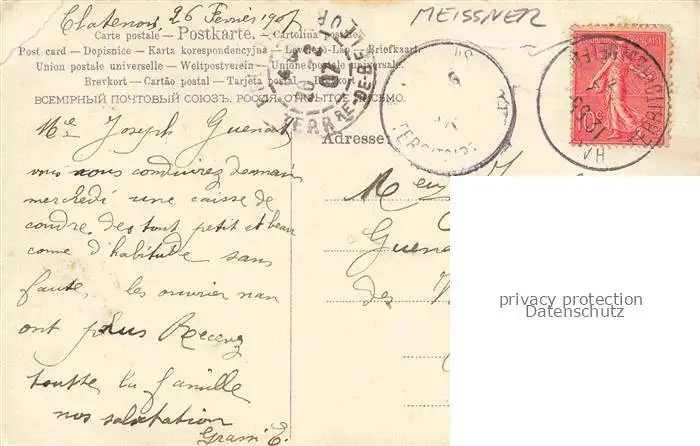 Chatenois, 26 Fevrier 1907
MEISSNER
Carte postale — Postkarte. — Cartolina postale
Post card — Dopisnice — Karta korespondencyjna — Levelező-Lap — Briefkaart
Union postale universelle — Weltpostverein — Unione postale universale
Brevkort — Cartão postal — Tarjeta postal — Brefkort
ВСЕМІРНЫЙ ПОЧТОВЫЙ СОЮЗЪ. РОССІЯ. ОТКРЫТОЕ ПИСЬМО.
Adresse
TERRITOIRE
10c
Joseph Guenat
vous nous conduirez demain
mercredi une caisse de
coudre des tout petit et beau
come d'habitude sans
faute, les ouvrier nan
ont plus Recevez
toutte la famille
nos salutation
Grassi E.
Guena
des
privacy protection
Datenschutz